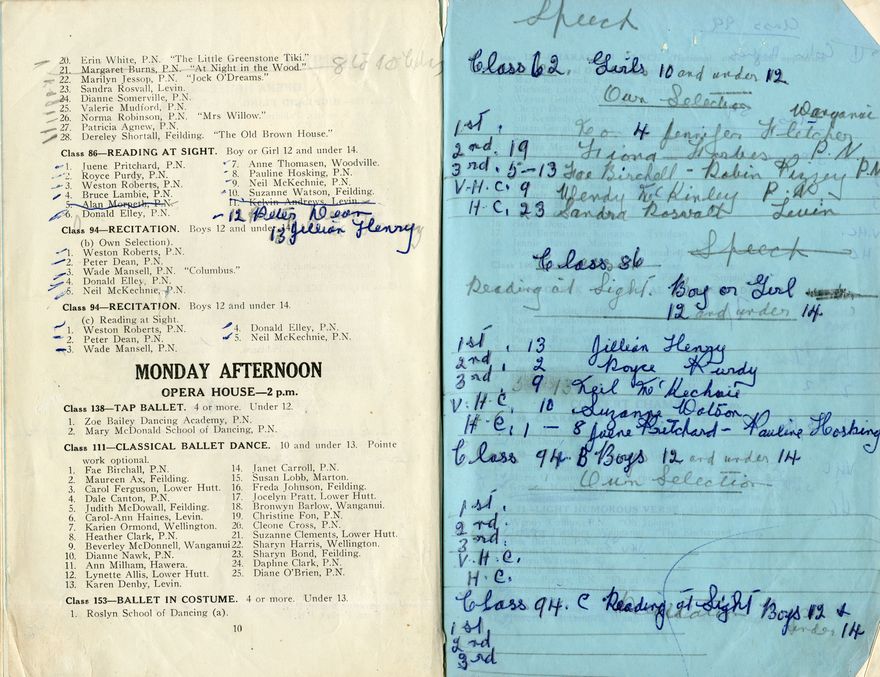 20. Erin White, P.N. "The Little Greenstone Tiki."
21. Margaret Burns, P.N. "At Night in the Wood."
22. Marilyn Jessop, P.N. "Jock O'Dreams."
23. Sandra Rosvall, Levin.
24. Dianne Somerville, P.N.
25. Valerie Mudford, P.N.
26. Norma Robinson, P.N. "Mrs Willow."
27. Patricia Agnew, P.N.
28. Dereley Shortall, Feilding. "The Old Brown House."
Class 86—READING AT SIGHT. Boy or Girl 12 and under 14.
1. Juene Pritchard, P.N.
2. Royce Purdy, P.N.
3. Weston Roberts, P.N.
4. Bruce Lambie, P.N.
5. Alan Morpeth, P.N.
6. Donald Elley, P.N.
7. Anne Thomasen, Woodville.
8. Pauline Hosking, P.N.
9. Neil McKechnie, P.N.
10. Suzanne Watson, Feilding.
11. Kelvin Andrews, Levin.
12 Peter Dean
13 Jillian Henry
Class 94—RECITATION. Boys 12 and under 14.
(b) Own Selection).
1. Weston Roberts, P.N.
2. Peter Dean, P.N.
3. Wade Mansell, P.N. "Columbus."
4. Donald Elley, P.N.
5. Neil McKechnie, P.N.
Class 94—RECITATION. Boys 12 and under 14.
(c) Reading at Sight.
1. Weston Roberts, P.N.
2. Peter Dean, P.N.
3. Wade Mansell, P.N.
4. Donald Elley, P.N.
5. Neil McKechnie, P.N.
MONDAY AFTERNOON
OPERA HOUSE—2 p.m.
Class 138—TAP BALLET. 4 or more. Under 12.
1. Zoe Bailey Dancing Academy, P.N.
2. Mary McDonald School of Dancing, P.N.
Class 111—CLASSICAL BALLET DANCE. 10 and under 13. Pointe
work optional.
1. Fae Birchall, P.N.
2. Maureen Ax, Feilding.
3. Carol Ferguson, Lower Hutt.
4. Dale Canton, P.N.
5. Judith McDowall, Feilding.
6. Carol-Ann Haines, Levin.
7. Karien Ormond, Wellington.
8. Heather Clark, P.N.
9. Beverley McDonnell, Wanganui
10. Dianne Nawk, P.N.
11. Ann Milham, Hawera.
12. Lynette Allis, Lower Hutt.
13. Karen Denby, Levin.
14. Janet Carroll, P.N.
15. Susan Lobb, Marton.
16. Freda Johnson, Feilding.
17. Jocelyn Pratt, Lower Hutt.
18. Bronwyn Barlow, Wanganui.
19. Christine Fon, P.N.
20. Cleone Cross, P.N.
21. Suzanne Clements, Lower Hutt.
22. Sharyn Harris, Wellington.
23. Sharyn Bond, Feilding.
24. Daphne Clark, P.N.
25. Diane O'Brien, P.N.
Class 153—BALLET IN COSTUME. 4 or more. Under 13.
1. Roslyn School of Dancing (a).
10
Speech
Class 62. Girls 10 and under 12
Own Selection
Wanganui
1st. 4 Jennifer Fletcher
2nd. 19 Fiona Forbes P.N
3rd. 5-13 Fae Birchall - Robin Pizzey P.N
V.H.C. 9 Wendy McKinley P.N
H.C. 23 Sandra Rosvall Levin
Speech
Class 86
Reading at Sight. Boy or Girl
12 and under 14
1st. 13 Jillian Henry
2nd. 2 Royce Purdy
3rd. 9 Neil McKechnie
V.H.C. 10 Suzanne Watson
H.C. 1 - 8 Juene Pritchard - Pauline Hosking
Class 94. B Boys 12 and under 14
Own Selection
1st.
2nd.
3rd.
V.H.C.
H.C.
Class 94. C Reading at Sight Boys 12 &
under 14
1st
2nd
3rd